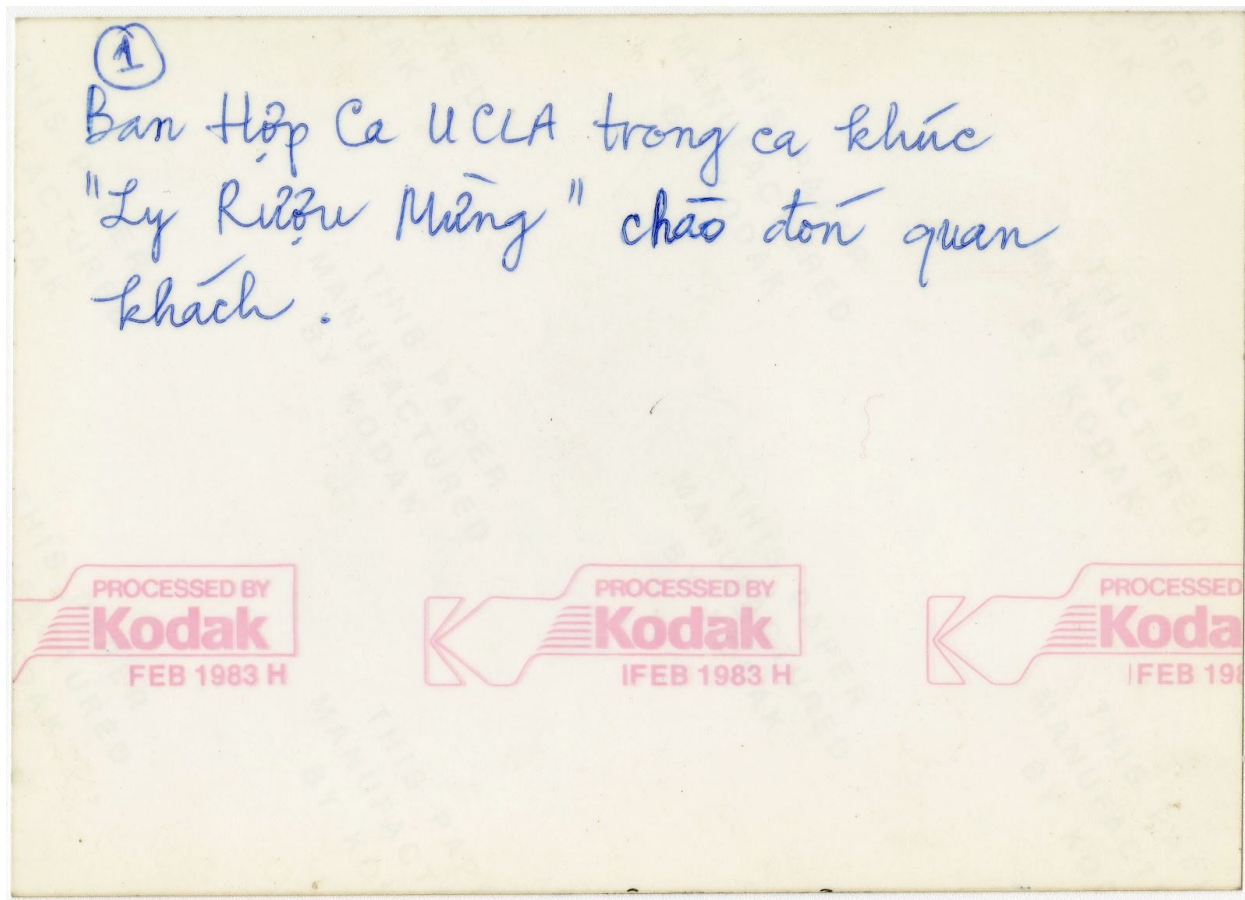 1
Ban Hợp Ca UCLA trong ca khúc
"Ly Rượu Mừng" chào đón quan
khách.
PROCESSED BY
Kodak
FEB 1983 H
PROCESSED BY
Kodak
FEB 1983 H
PROCESSED
Koda
FEB 198
THIS PAPER
MANUFACTURED
BY KODAK